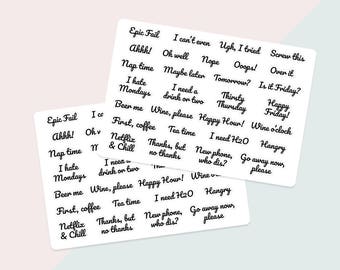 Epic Fail I can't even Ugh, I tried Screw this
Ahhh! Oh well Nope Ooops! Over it
Nap time Maybe later Tomorrow? Is it Friday?
I hate
Mondays
I need a
drink or two
Thirsty
Thursday
Happy
Friday!
Beer me Wine, please Happy Hour! Wine o'clock
First, coffee Tea time I need H2O Hangry
Netflix
& Chill
Thanks, but
no thanks
New phone,
who dis?
Go away now,
please
Epic Fail I can't
Ahhh! Oh w
Nap time
I hate
Mondays
I need a
drink or two
Beer me Wine, please Happy Hour! Wine o'
First, coffee Tea time I need H2O Hangry
Netflix
& Chill
Thanks, but
no thanks
New phone,
who dis?
Go away now,
please